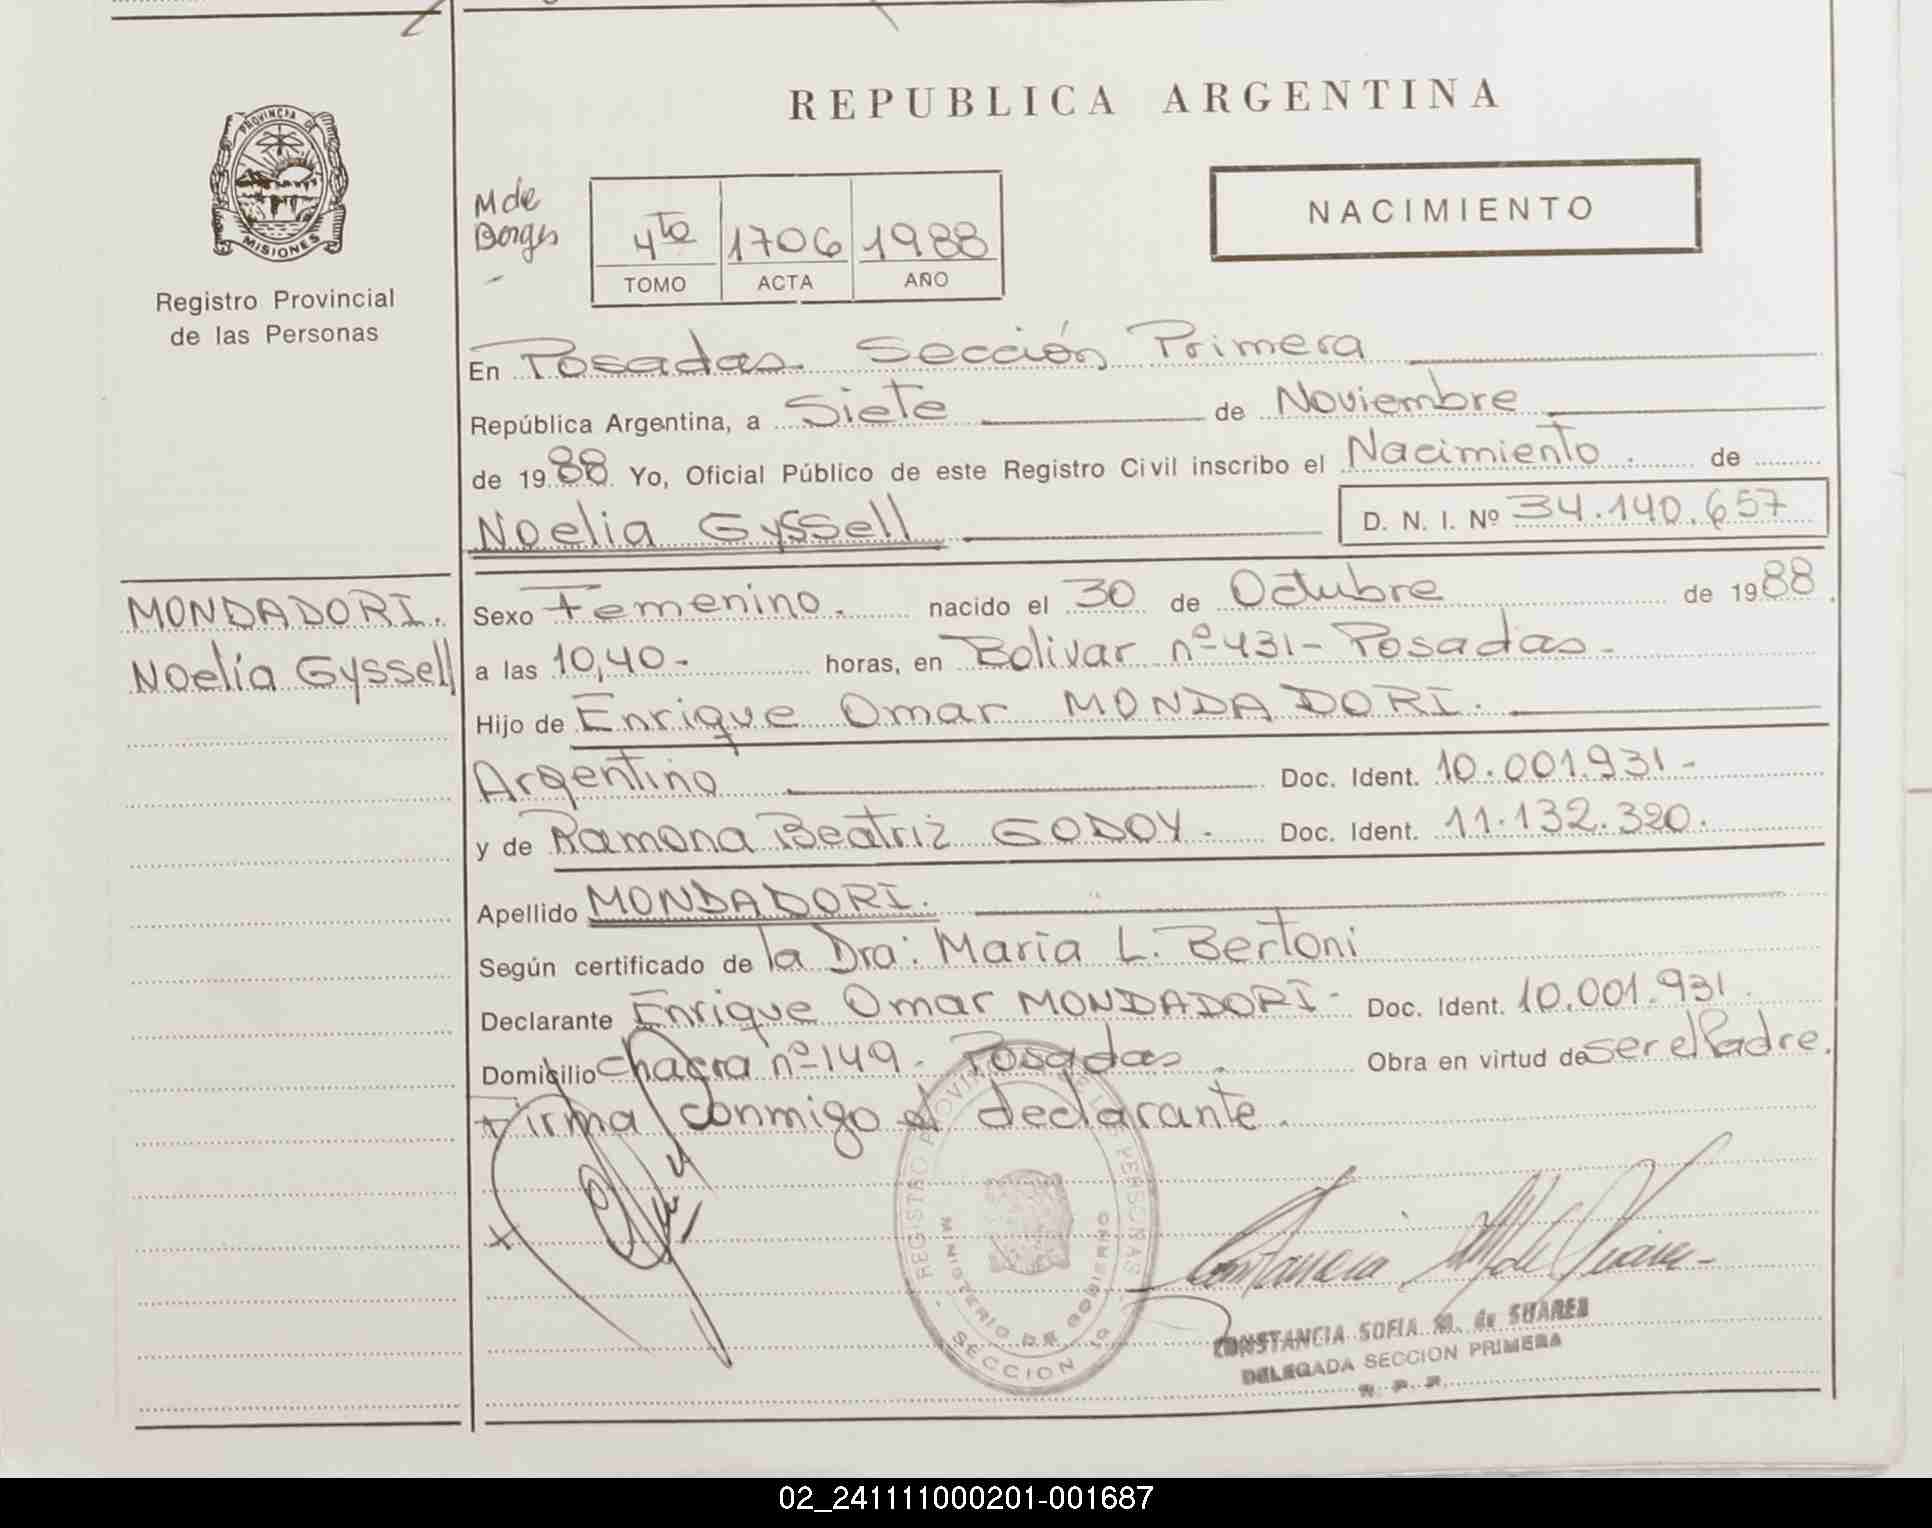 REPUBLICA ARGENTINA
PROVINCIA DE
MISIONES
Registro Provincial
de las Personas
M de
Borges
4to 1706 1988
TOMO ACTA AÑO
NACIMIENTO
En Posadas. Sección Primera
República Argentina, a Siete de Noviembre
de 1988 Yo, Oficial Público de este Registro Civil inscribo el Nacimiento. de
Noelia Gyssell D. N. I. Nº 34.140.657
MONDADORI.
Noelía Gyssell
Sexo Femenino. nacido el 30 de Octubre de 1988.
a las 10,40- horas, en Bolivar nº 431- Posadas-
Hijo de Enrique Omar MONDADORI.
Argentino Doc. Ident. 10.001.931-
y de Ramona Beatriz GODOY. Doc. Ident. 11.132.320.
Apellido MONDADORI.
Según certificado de la Dra: María L. Bertoni
Declarante Enrique Omar MONDADORI- Doc. Ident. 10.001.931.
Domicilio Chacra nº 149. Posadas. Obra en virtud de ser el Padre.
Firma conmigo el declarante.
REGISTRO PROVINCIAL DE LAS PERSONAS
MINISTERIO DE GOBIERNO
SECCION 1a
Constancia M de Suarez
CONSTANCIA SOFIA M. de SUAREZ
DELEGADA SECCION PRIMERA
R. P. P.
02_241111000201-001687